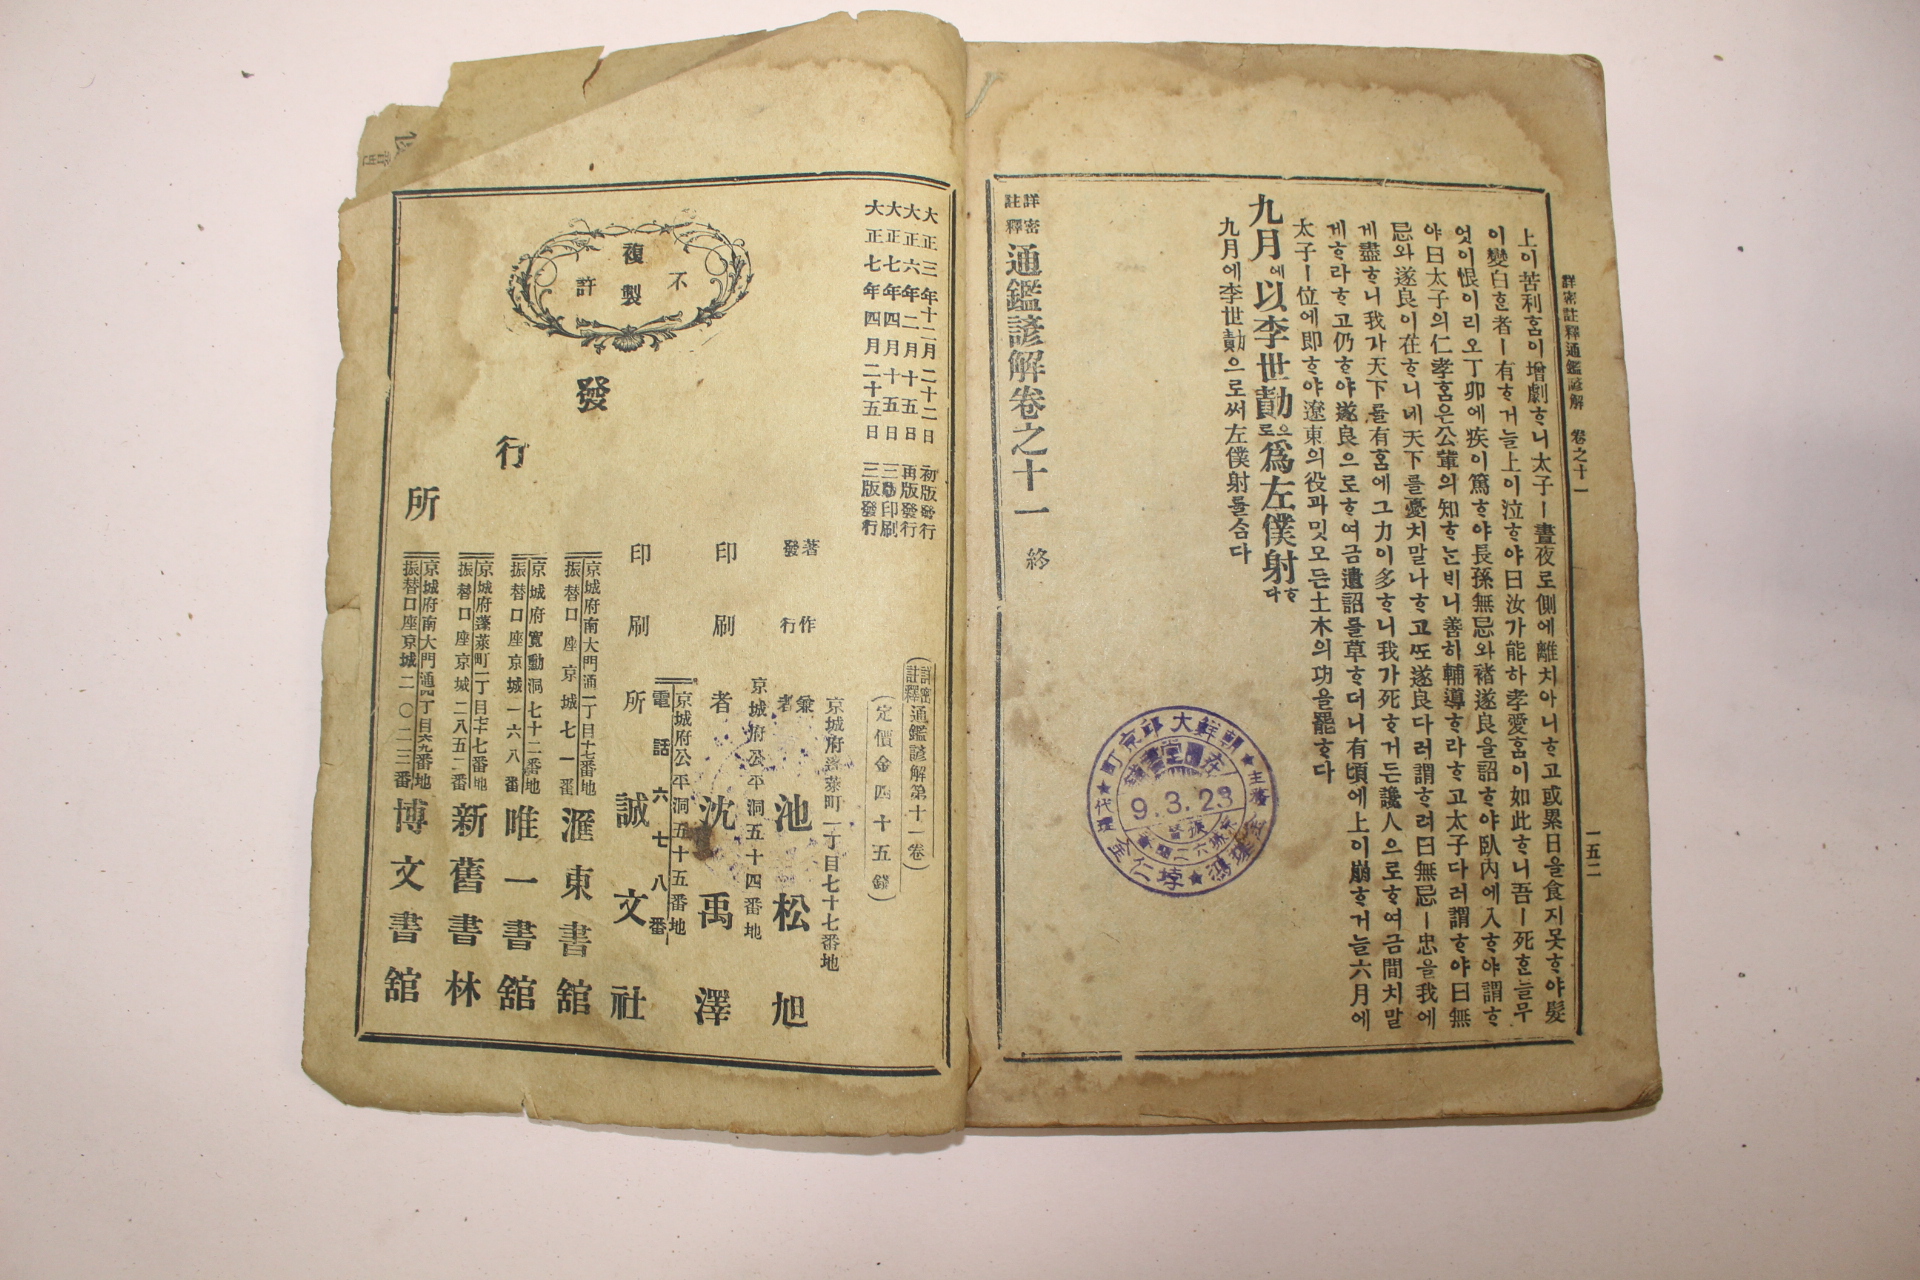 詳密註釋通鑑諺解 卷之十一
一五二
上이苦利홈이增劇ᄒᆞ니太子ㅣ晝夜로側에離치아니ᄒᆞ고或累日을食지못ᄒᆞ야髮
이變白ᄒᆞᆫ者ㅣ有ᄒᆞ거늘上이泣ᄒᆞ야曰汝가能하孝愛홈이如此ᄒᆞ니吾ㅣ死ᄒᆞᆫ들무
엇이恨이리오丁卯에疾이篤ᄒᆞ야長孫無忌와褚遂良을詔ᄒᆞ야臥內에入ᄒᆞ야謂ᄒᆞ
야曰太子의仁孝홈은公輩의知ᄒᆞᄂᆞᆫ비니善히輔導ᄒᆞ라ᄒᆞ고太子다려謂ᄒᆞ야曰無
忌와遂良이在ᄒᆞ니네天下를憂치말나ᄒᆞ고ᄯᅩ遂良다려謂ᄒᆞ려曰無忌ㅣ忠을我에
게盡ᄒᆞ니我가天下를有홈에그力이多ᄒᆞ니我가死ᄒᆞ거든讒人으로ᄒᆞ여금間치말
게ᄒᆞ라ᄒᆞ고仍ᄒᆞ야遂良으로ᄒᆞ여금遺詔를草ᄒᆞ더니有頃에上이崩ᄒᆞ거늘六月에
太子ㅣ位에即ᄒᆞ야遼東의役과밋모든土木의功을罷ᄒᆞ다
九月에以李世勣으로爲左僕射ᄒᆞ다
九月에李世勣으로써左僕射를合다
詳密註釋通鑑諺解卷之十一 終
朝鮮大邱京町
在田堂書鋪
9.3.23
主務 金璂鴻
代理 金仁埻
大正三年十二月二十二日 初版發行
大正六年二月十五日 再版發行
大正七年四月十五日 三版印刷
大正七年四月二十五日 三版發行
不許複製
(詳密註釋通鑑諺解第十一卷)
(定價金四十五錢)
京城府蓬萊町一丁目七十七番地
著作兼發行者 池松旭
京城府公平洞五十四番地
印刷者 沈禹澤
京城府公平洞五十五番地
電話六七八番
印刷所 誠文社
發行所
京城府南大門通一丁目十七番地
振替口座京城七一一番
滙東書館
京城府寬勳洞七十二番地
振替口座京城一六八番
唯一書館
京城府蓬萊町一丁目七十七番地
振替口座京城二八五二番
新舊書林
京城府南大門通四丁目六九番地
振替口座京城二〇二三番
博文書館